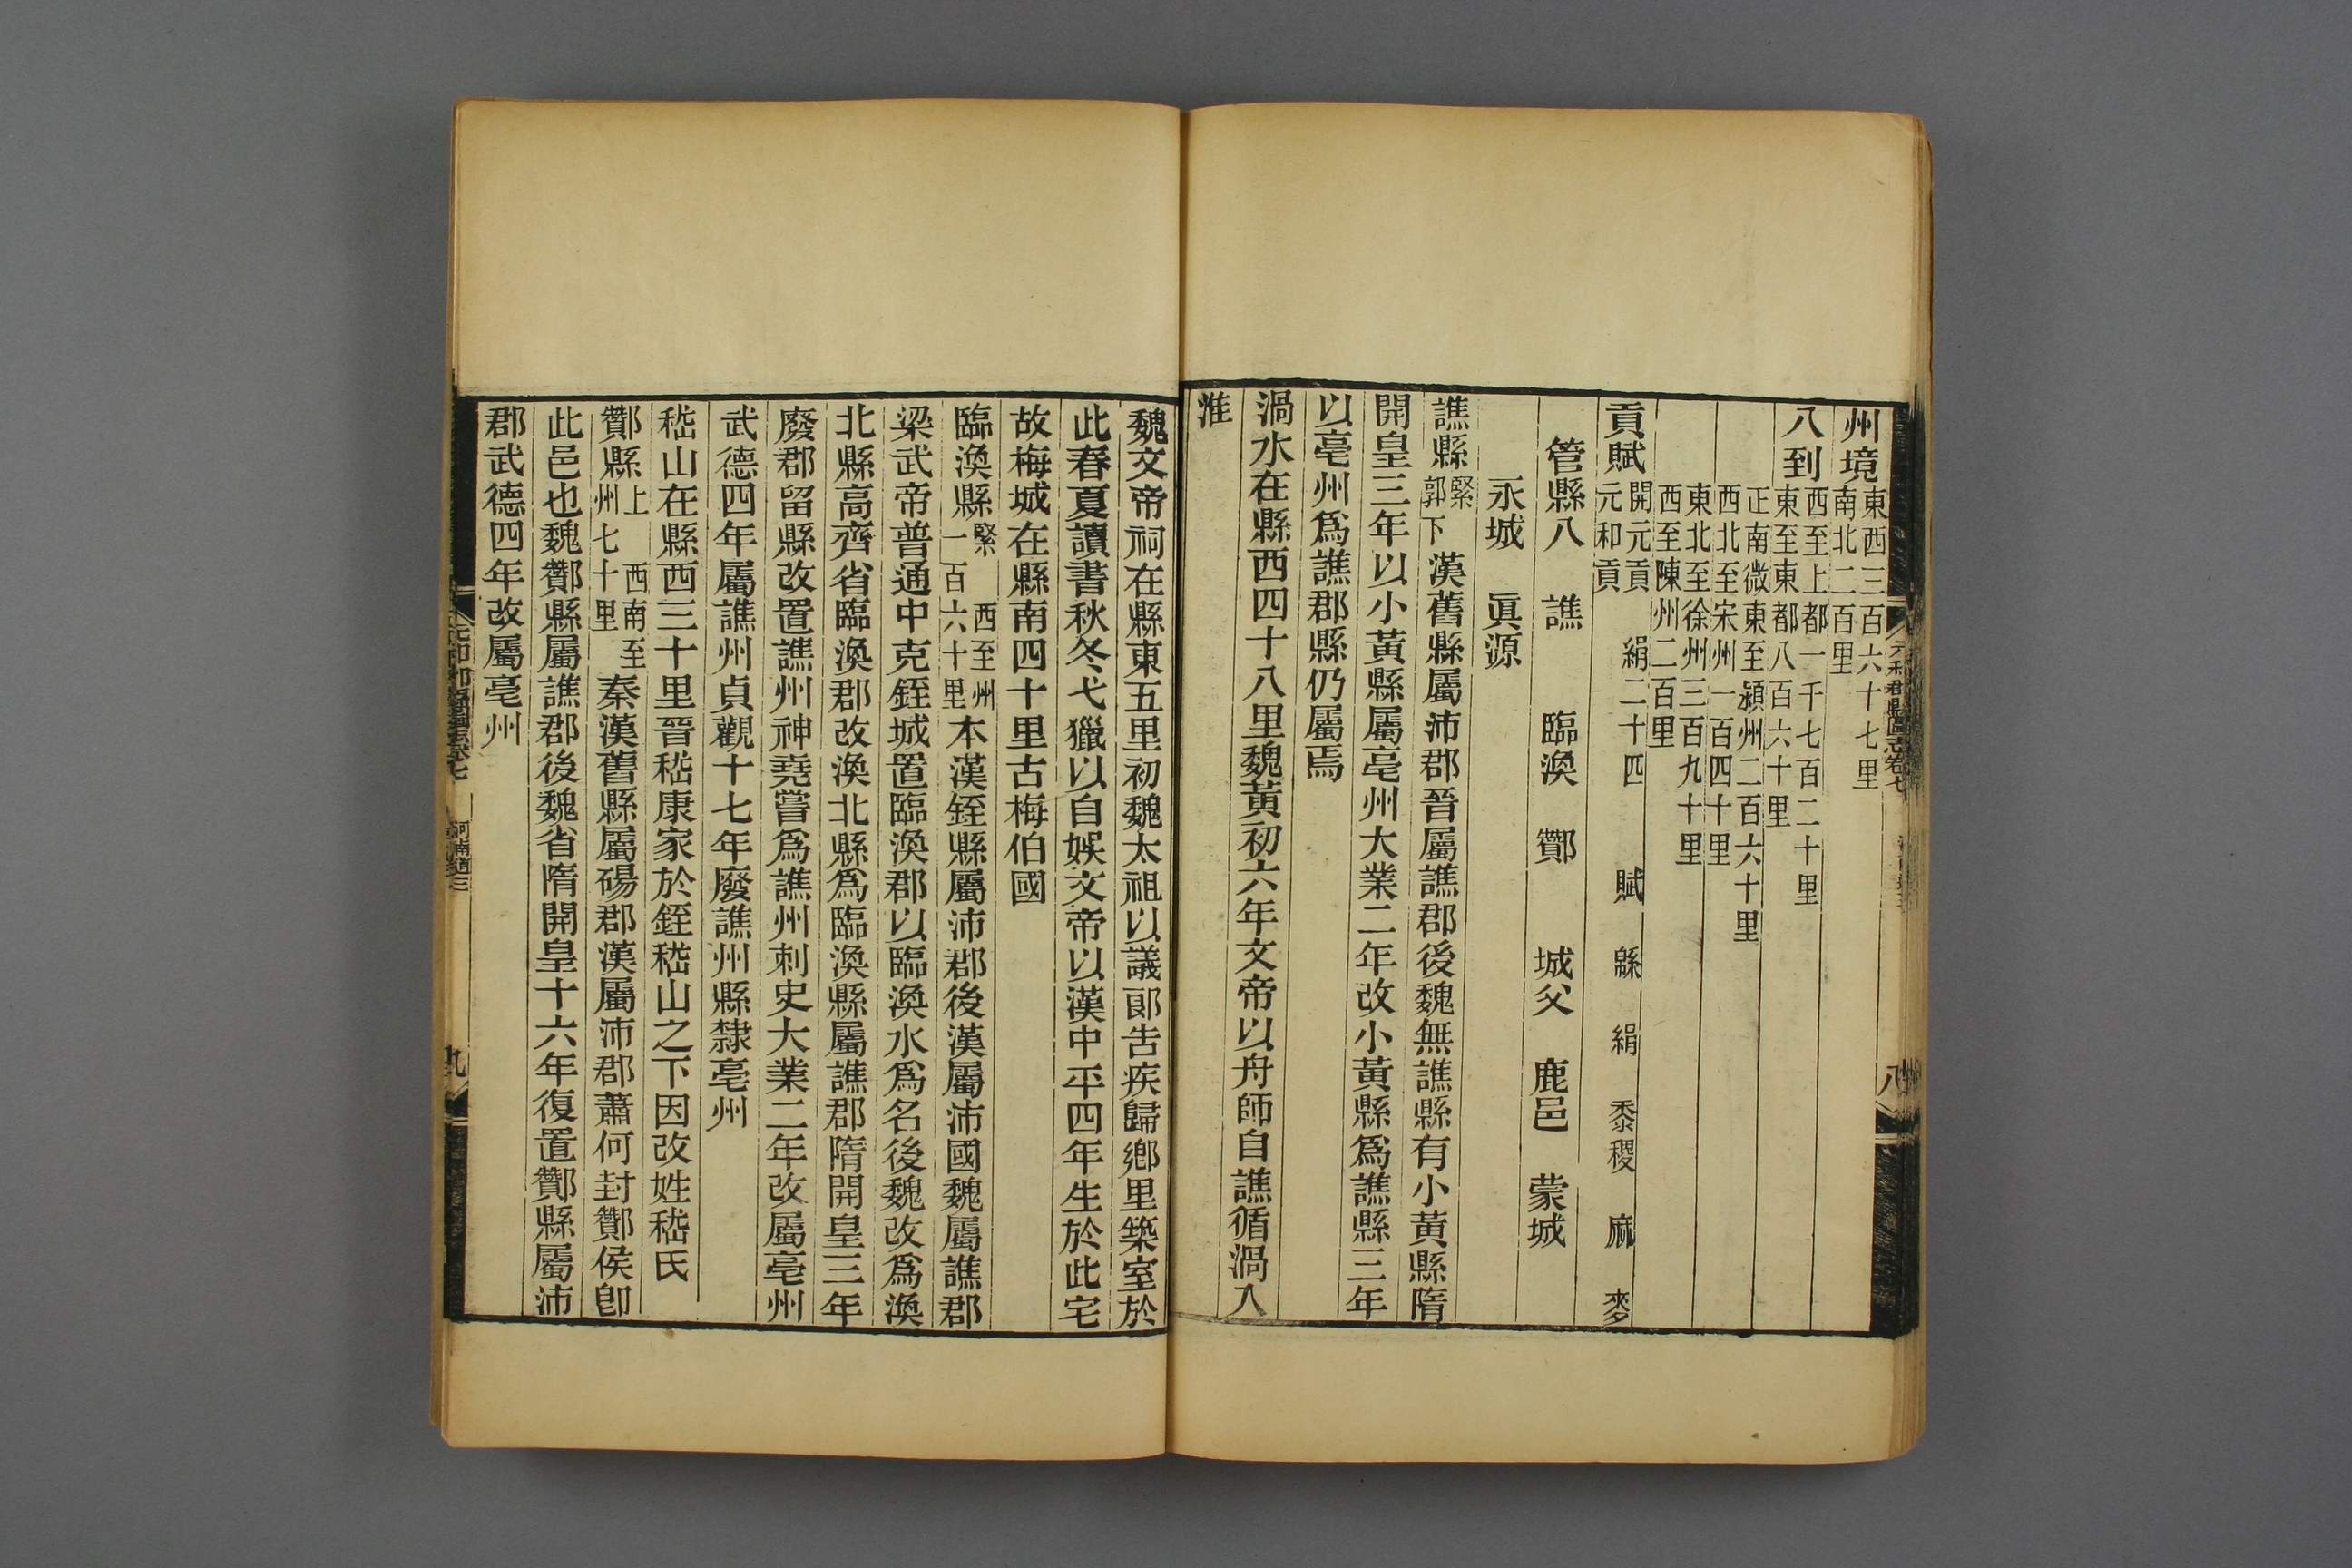 元和郡縣圖志卷七
八
州境東西三百六十七里南北二百里
八到西至上都一千七百二十里東至東都八百六十里
正南微東至潁州二百六十里西北至宋州一百四十里
東北至徐州三百九十里西至陳州二百里
貢賦開元貢絹二十四賦緜絹黍稷麻麥元和貢
管縣八譙臨渙酇城父鹿邑蒙城
永城真源
譙縣緊郭下漢舊縣屬沛郡晉屬譙郡後魏無譙縣有小黃縣隋
開皇三年以小黃縣屬亳州大業二年改小黃縣爲譙縣三年
以亳州爲譙郡縣仍屬焉
渦水在縣西四十八里魏黃初六年文帝以舟師自譙循渦入
淮
魏文帝祠在縣東五里初魏太祖以議郞吿疾歸鄕里築室於
此春夏讀書秋冬弋獵以自娛文帝以漢中平四年生於此宅
故梅城在縣南四十里古梅伯國
臨渙縣緊西至州一百六十里本漢銍縣屬沛郡後漢屬沛國魏屬譙郡
梁武帝普通中克銍城置臨渙郡以臨渙水爲名後魏改爲渙
北縣高齊省臨渙郡改渙北縣爲臨渙縣屬譙郡隋開皇三年
廢郡留縣改置譙州神堯嘗爲譙州刺史大業二年改屬亳州
武德四年屬譙州貞觀十七年廢譙州縣隸亳州
嵇山在縣西三十里晉嵇康家於銍嵇山之下因改姓嵇氏
酇縣上西南至州七十里秦漢舊縣屬碭郡漢屬沛郡蕭何封酇侯卽
此邑也魏酇縣屬譙郡後魏省隋開皇十六年復置酇縣屬沛
郡武德四年改屬亳州
河南道三
九